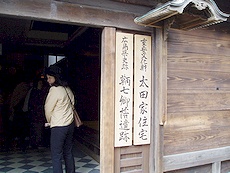 重要文化財
太田家住宅
広島県史跡
鞆七卿落遺跡